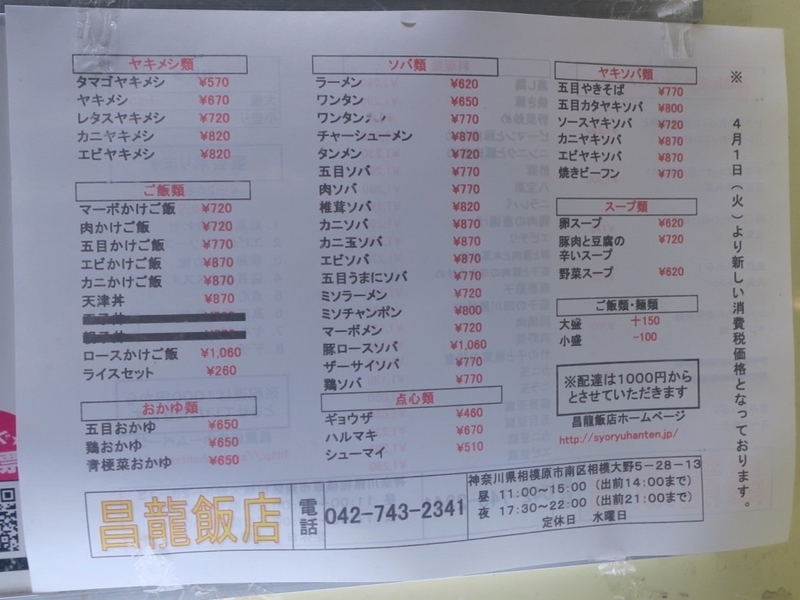 ヤキメシ類
タマゴヤキメシ ¥570
ヤキメシ ¥670
レタスヤキメシ ¥720
カニヤキメシ ¥820
エビヤキメシ ¥820
ご飯類
マーボかけご飯 ¥720
肉かけご飯 ¥720
五目かけご飯 ¥770
エビかけご飯 ¥870
カニかけご飯 ¥870
天津丼 ¥870
ロースかけご飯 ¥1,060
ライスセット ¥260
おかゆ類
五目おかゆ ¥650
鶏おかゆ ¥650
青梗菜おかゆ ¥650
ソバ類
ラーメン ¥620
ワンタン ¥650
ワンタンメン ¥770
チャーシューメン ¥870
タンメン ¥720
五目ソバ ¥770
肉ソバ ¥770
椎茸ソバ ¥820
カニソバ ¥870
カニ玉ソバ ¥870
エビソバ ¥870
五目うまにソバ ¥770
ミソラーメン ¥720
ミソチャンポン ¥800
マーボメン ¥720
豚ロースソバ ¥1,060
ザーサイソバ ¥770
鶏ソバ ¥770
点心類
ギョウザ ¥460
ハルマキ ¥670
シューマイ ¥510
ヤキソバ類
五目やきそば ¥770
五目カタヤキソバ ¥800
ソースヤキソバ ¥720
カニヤキソバ ¥870
エビヤキソバ ¥870
焼きビーフン ¥770
スープ類
卵スープ ¥620
豚肉と豆腐の ¥720
辛いスープ
野菜スープ ¥620
ご飯類・麺類
大盛 +150
小盛 -100
※配達は1000円から
とさせていただきます
昌龍飯店ホームページ
http://syoryuhanten.jp/
※ 4月1日(火)より新しい消費税価格となっております。
昌龍飯店
電話
042-743-2341
神奈川県相模原市南区相模大野5-28-13
昼 11:00~15:00 (出前14:00まで)
夜 17:30~22:00 (出前21:00まで)
定休日 水曜日